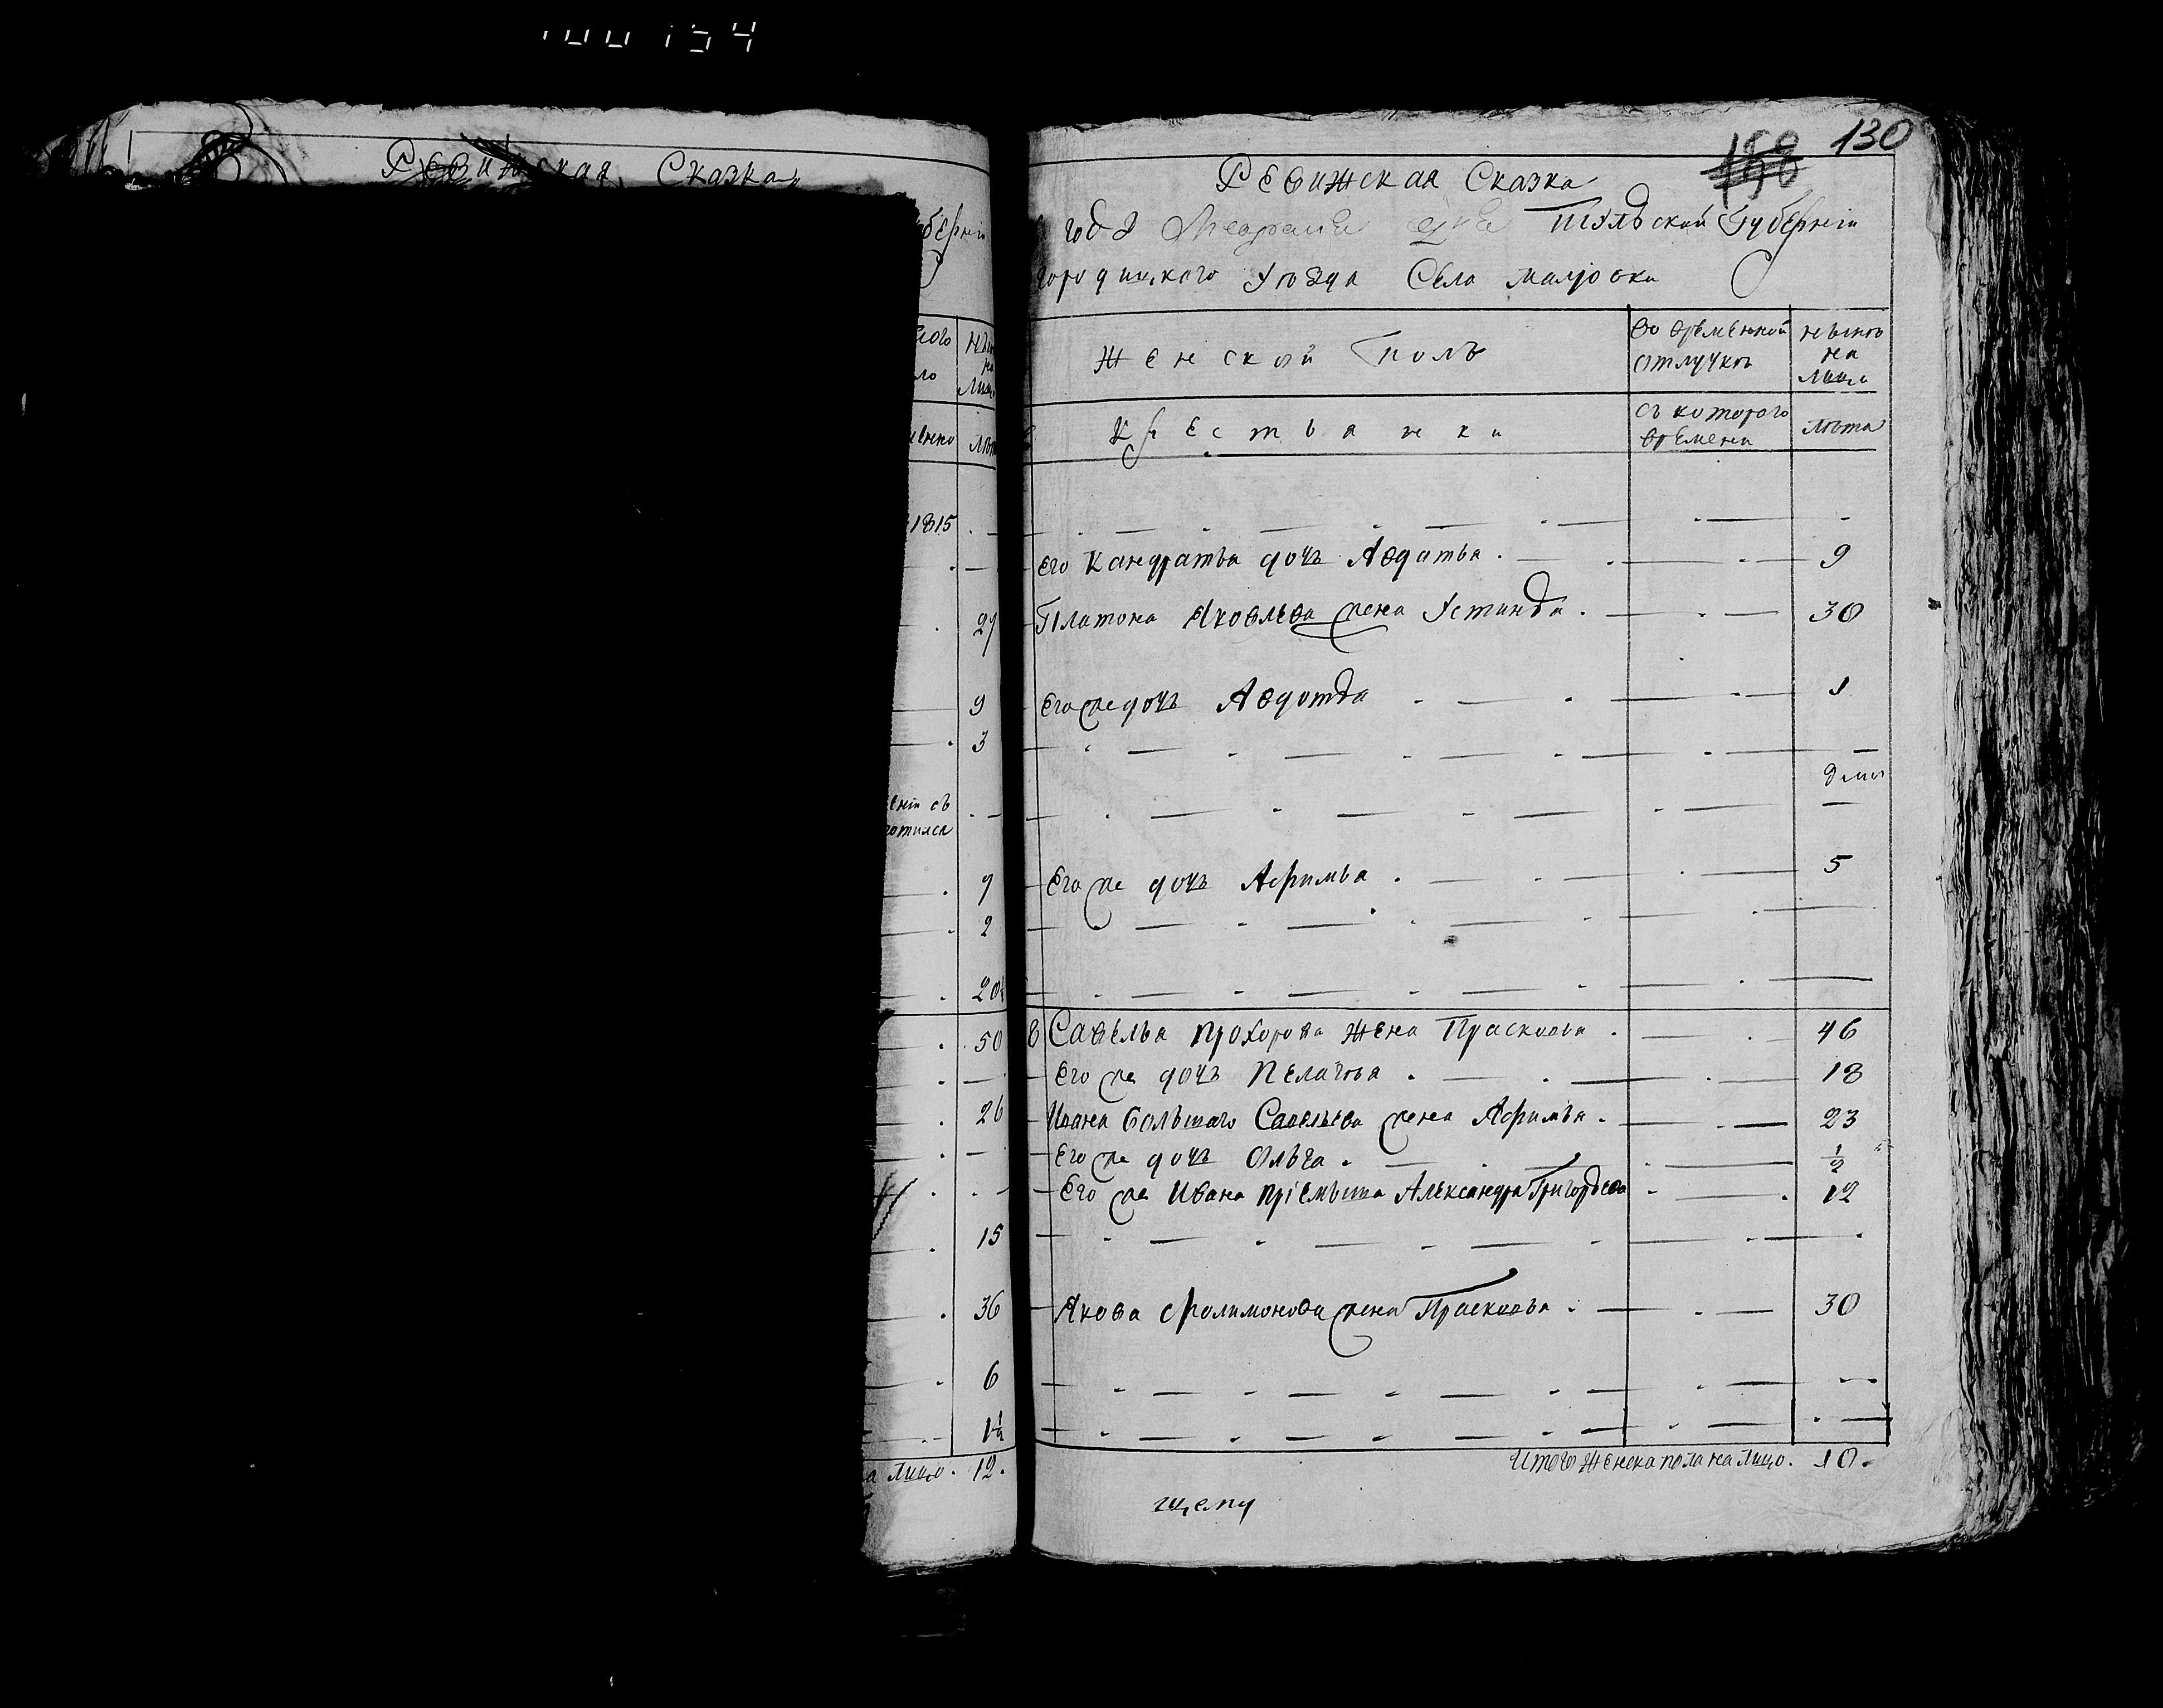 Ревижская Сказка
убернiи
1815
27
9
3
енiи съ
7
2
20½
50
26
15
36
6
1½
а лицо. 12.
130
Ревижская Сказка
года Тульской Губернiи
городицкого уезда Села маляовки
женской полъ
во временной отлучкѣ
нынѣ на лицо
Крестьянки
съ которого времени
лѣта
Его Кандратья дочь Авдотья . 9
Платона Яковлева жена Устинья . 30
Его же дочь Авдотья . 1
Его же дочь Афимья . 5
8 Савелья прохорова жена Прасковья . 46
Его же дочь Пелагѣя . 18
Ивана большаго Савельева жена Афимья . 23
Его же дочь Ольга . ½
Его же Ивана прiемыша Александра Григорьева 12
Якова фолимонова жена Прасковья . 30
Итого женска пола на лицо . 10.
щему